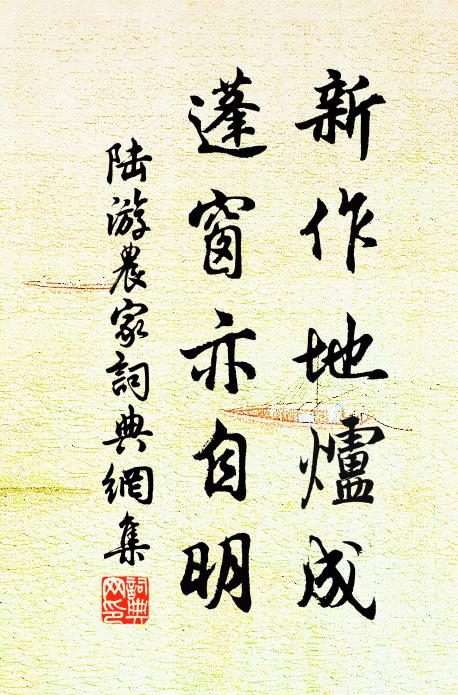 新作地爐成
蓬窗亦自明
陸游農家詞典網集
詞典網印